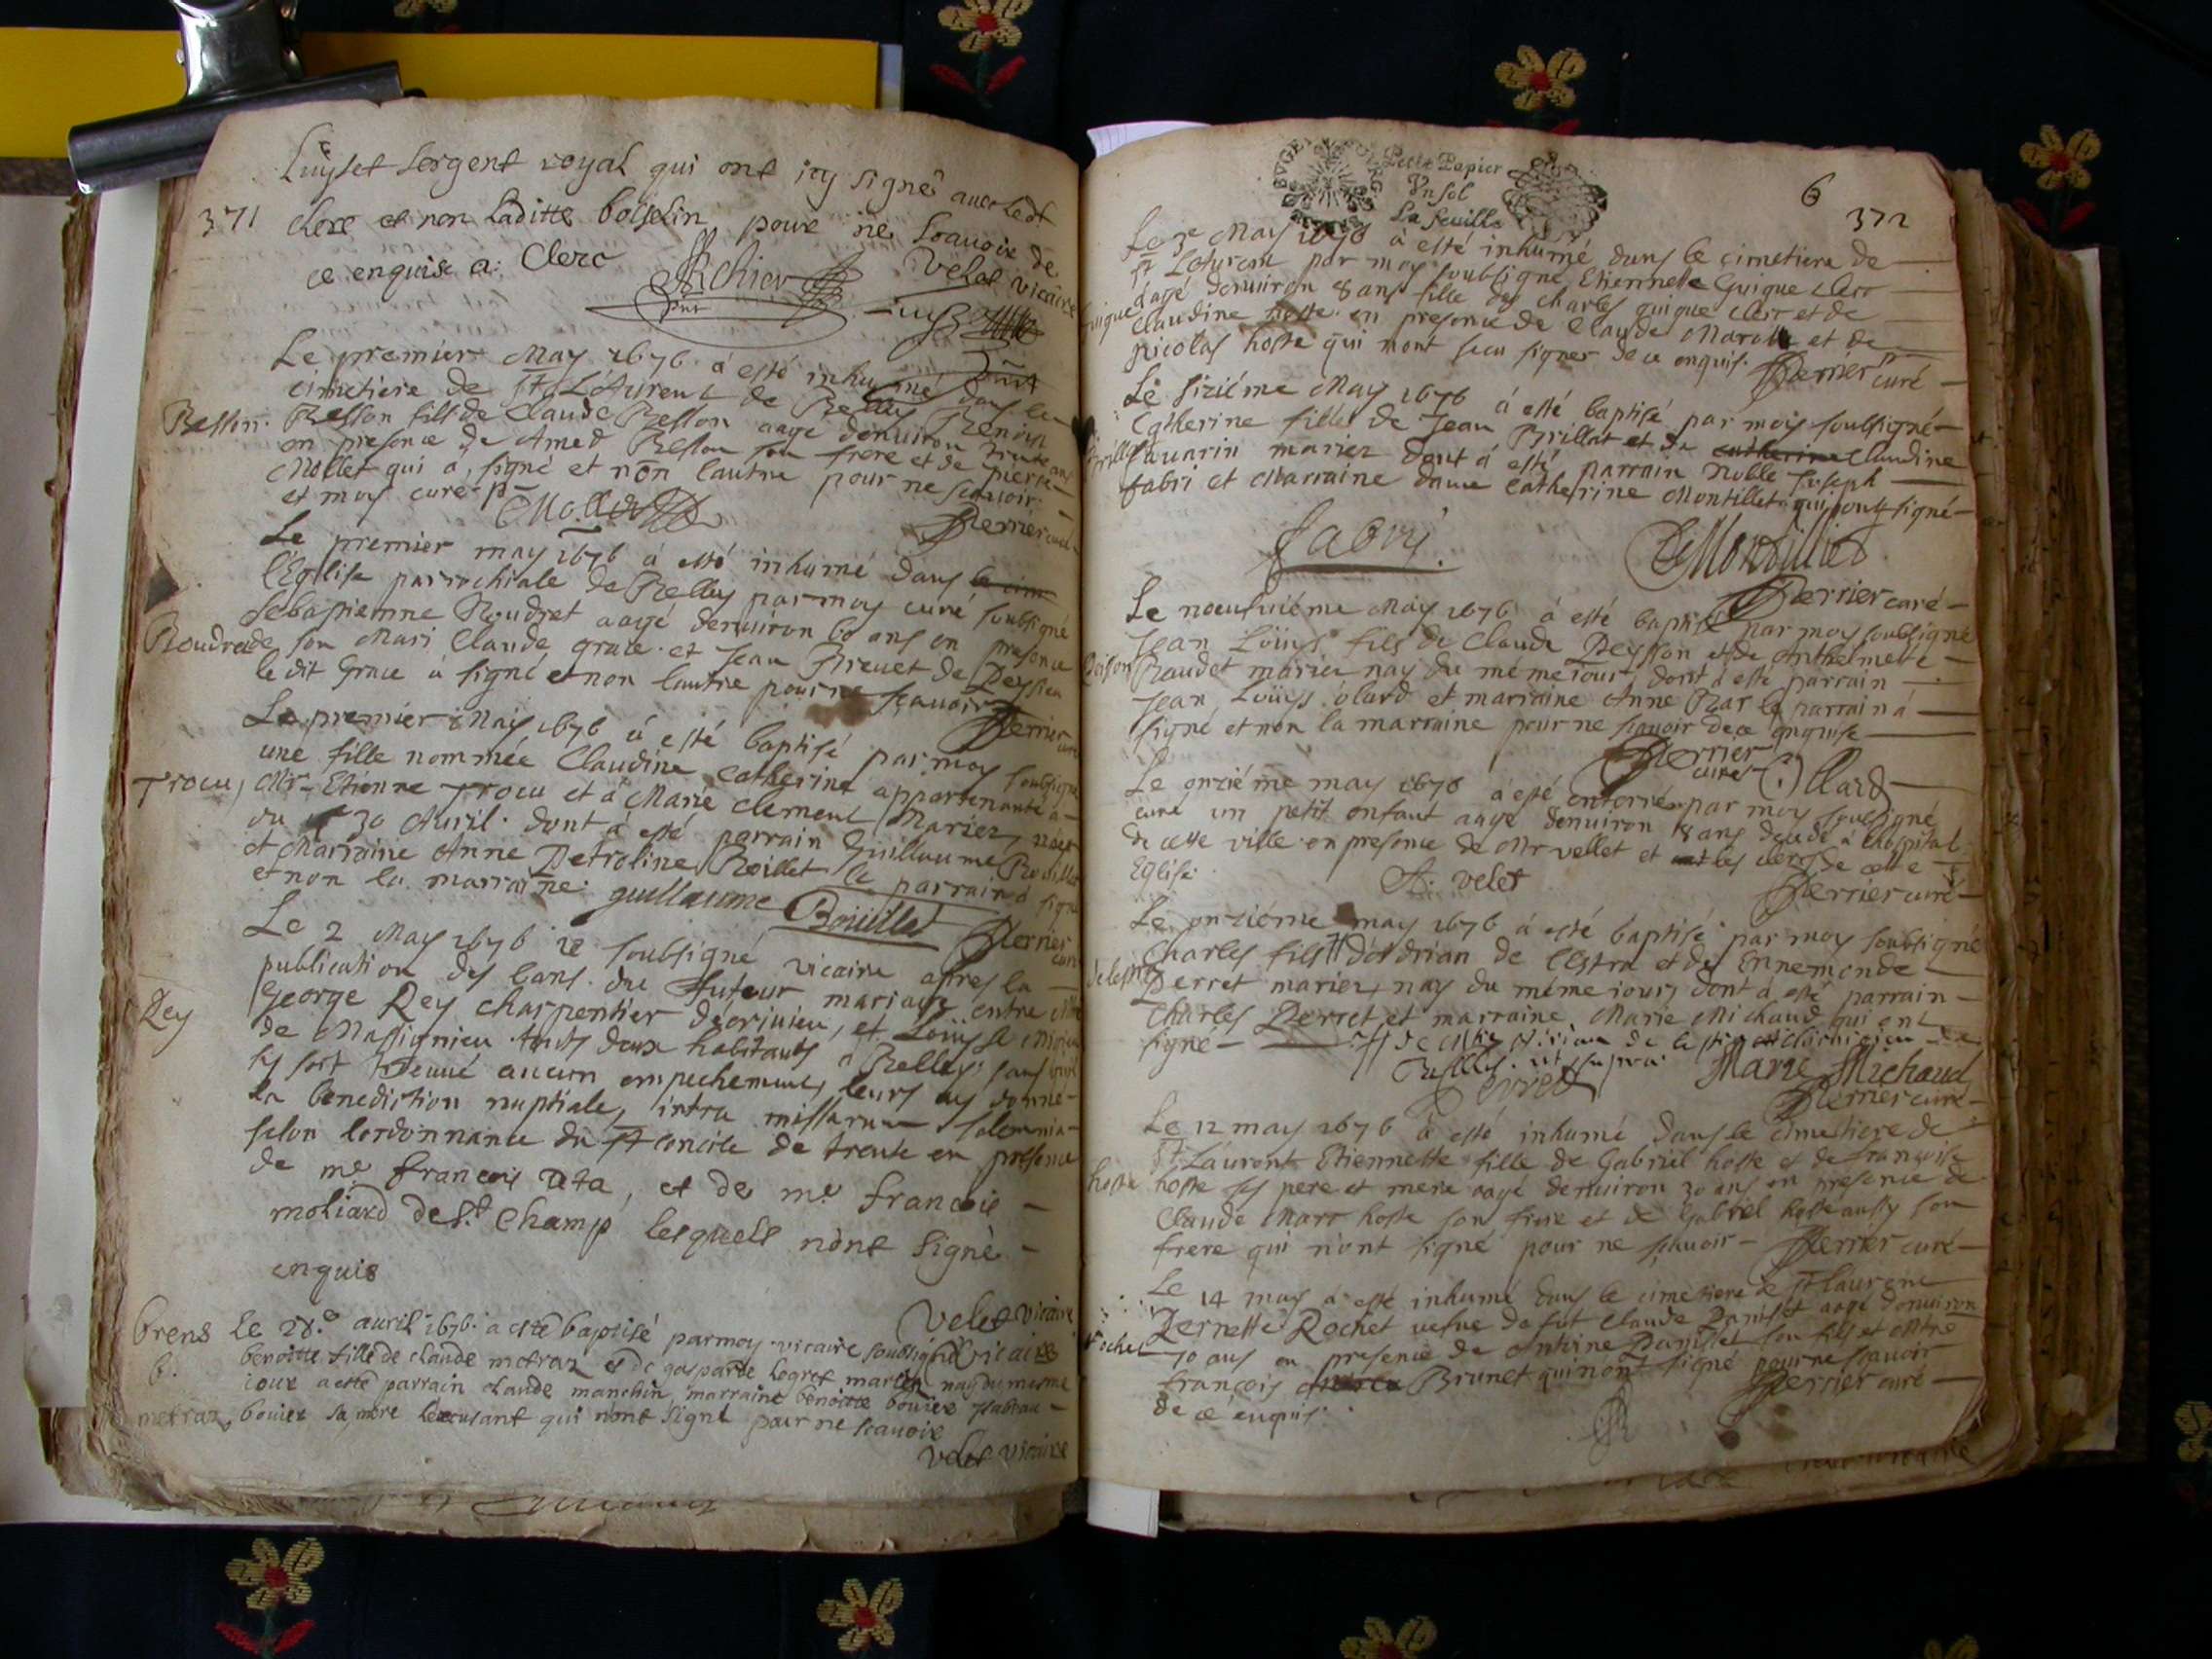 Luyset sergent royal qui ont icy signé avec ledt
371
clerc et non laditte bosselin pour ne scavoir de
ce enquise a. Clerc
Velet vicaire
Le premier May 1676 à esté inhumé dans le
cimetiere de St Laurent de Belley Benoist
Besson.
Besson fils de Claude Besson aagé denuiron trente ans
en presence de Amed Besson son frere et de pierre
Mollet qui a signé et non lautre pour ne scavoir
et moy curé
Mollet
Perrier curé
Le premier may 1676 à esté inhumé dans le cim
lEglise parrochiale de Belley par moy curé soubsigné
Sebastienne Roudret aagé denuiron 60 ans en presence
Roudret
de son Mari Claude grace et Jean Brevet de Peysieu
le dit Grace à signé et non lautre pour ne sçauoir
Perrier curé
Le premier May 1676 à esté baptisé par moy soubsigné
une fille nommée Claudine Catherine appartenante à
Trocu
Mr Etienne Trocu et à Marie Clement Mariez, née
du 30 Auril dont à esté parrain Guillaume Bouillet
et Marraine Anne Petroline Boillet le parrain à signé
et non la marraine.
guillaume Boüillet
Perrier curé
Le 2 May 1676 ie soubsigné vicaire apres la
publication des bans du futeur mariage entre
Rey
George Rey charpentier
de Massignieu touts deux habitants à Belley sans quil
sy soit treuué aucun empechement, leurs ay donné
la benediction nuptiale, intra missarum solemnia
selon lordonnance du St concile de trente en presence
de me françois
, et de me françois
moliard de St Champ lesquels nont signé
enquis
Velet vicaire
Brens
Le 28.e auril 1676 a esté baptisé par moy vicaire soubsigné
B.
benoitte fille de claude metraz et de gasparde
mariez nay du mesme
iour a esté parrain claude manchin, marraine benoitte bouier
metraz
bouier sa mere
qui nont signé pour ne scauoir
velet vicaire
BVGEY
Petit Papier
Vn sol
La feuille
6
372
Le 3e May 1676 à esté inhumé dans le cimetiere de
St Laturent par moy soubsigné Etiennette Guigue clerc
aagé denuiron 8 ans fille de Charles guigue clerc et de
Guigue
Claudine hoste en presence de Claude Marc et de
nicolas hoste qui nont sceu signer de ce enquis.
Perrier curé
Le siziéme May 1676 à esté baptisé par moy soubsigné
Catherine fille de Jean Brillat et de catherine Claudine
Brillat
sauarin mariez dont à esté parrain Noble Joseph
fabri et Marraine dame Catherine Montillet qui ont signé
fabri
C Montillet
Perrier curé
Le noeufuiéme May 1676 à esté baptisé par moy soubsigné
Jean Loüis fils de Claude Peysson et de Anthelmette
Peison
Baudet mariez nay du méme iour dont à esté parrain
Jean Loüis olard et marraine Anne Bar le parrain à
signé et non la marraine pour ne sçauoir de ce enquise
Perrier
curé
Ollard
Le onziéme may 1676 à esté enterré par moy soubsigné
curé un petit enfant aagé denuiron 8 ans decedé à lhospital
de cette ville en presence de Mr vellet et
les clercs de cette
Eglise
A. velet
Perrier curé
Le onziéme may 1676 à esté baptisé par moy soubsigné
Charles fils d'Adrian de lestra et de Ennemonde
Perret mariez, nay du méme iour, dont à esté parrain
Charles Perret et marraine Marie Michaud qui ont
signé
ut supra
Marie Michaud
Perret
Perrier curé
Le 12 may 1676 à esté inhumé dans le cimetiere de
St Laurent Etiennette fille de Gabriel hoste et de françoise
hoste
hoste ses pere et mere aagé denuiron 30 ans en presence de
Claude Marc hoste son frere et de Gabriel hoste aussy son
frere qui n'ont signé pour ne sçauoir
Perrier curé
Le 14 may à esté inhumé dans le cimetiere de St Laurent
Pernette Rochet vefue de fut Claude Danillet aagé denuiron
Rochet
70 ans en presence de Antoine Danillet son fils et
françois
Brunet qui nont signé pour ne sçauoir
de ce enquis.
Perrier curé